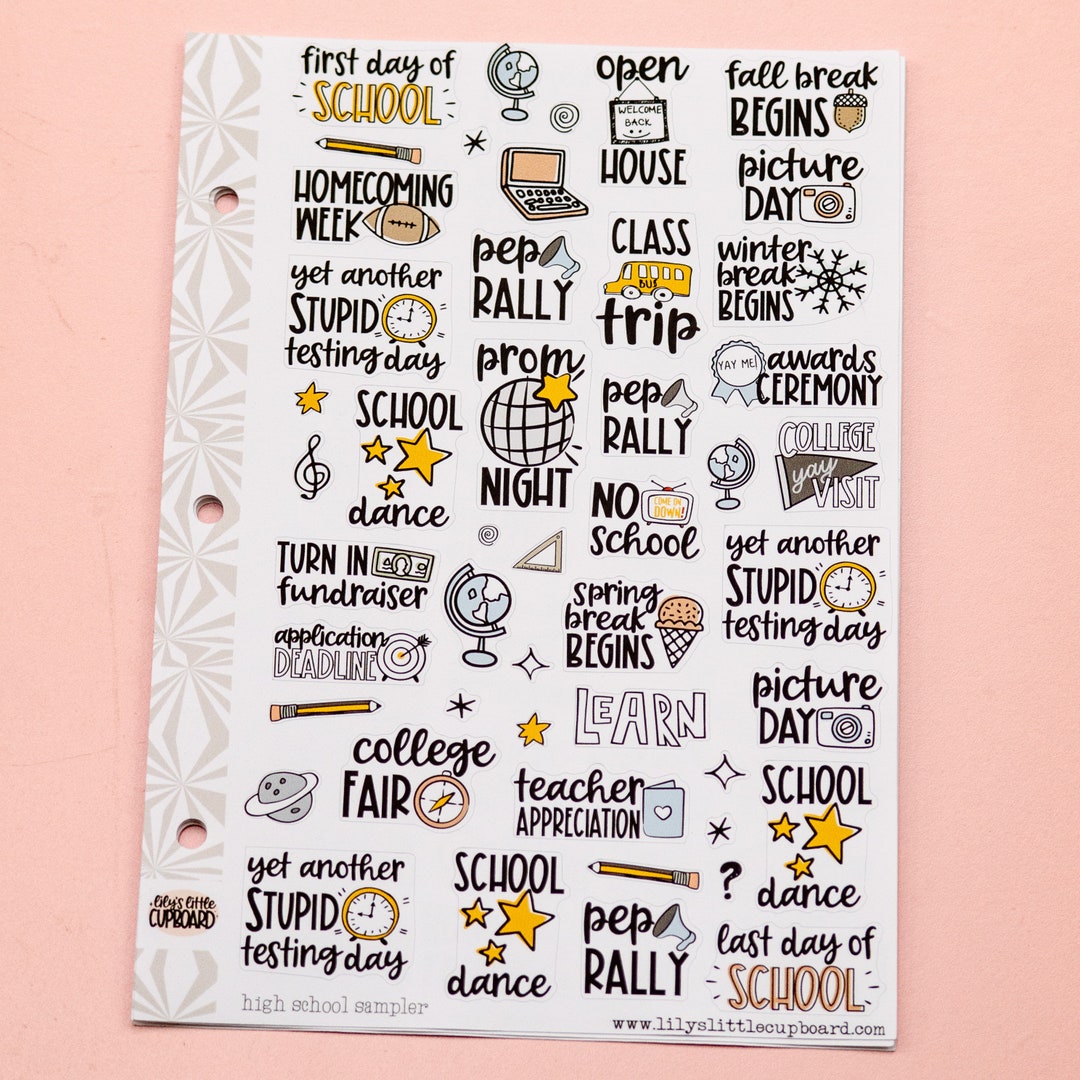 first day of
SCHOOL
open
WELCOME
BACK
HOUSE
fall break
BEGINS
HOMECOMING
WEEK
picture
DAY
pep
RALLY
CLASS
BUS
trip
winter
break
BEGINS
yet another
STUPID
testing day
prom
NIGHT
pep
RALLY
YAY ME!
awards
CEREMONY
SCHOOL
dance
COLLEGE
yay
VISIT
NO
COME ON
DOWN!
school
TURN IN
fundraiser
yet another
STUPID
testing day
spring
break
BEGINS
application
DEADLINE
LEARN
picture
DAY
college
FAIR
teacher
APPRECIATION
SCHOOL
dance
yet another
STUPID
testing day
SCHOOL
dance
?
pep
RALLY
last day of
SCHOOL
lily's little
CUPBOARD
high school sampler
www.lilyslittlecupboard.com